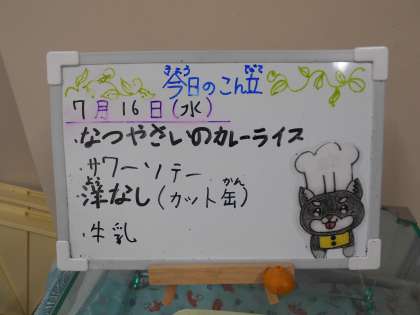 今日のこん立
7月16日(水)
・なつやさいのカレーライス
・サワーソテー
・洋なし(カット缶)
・牛乳